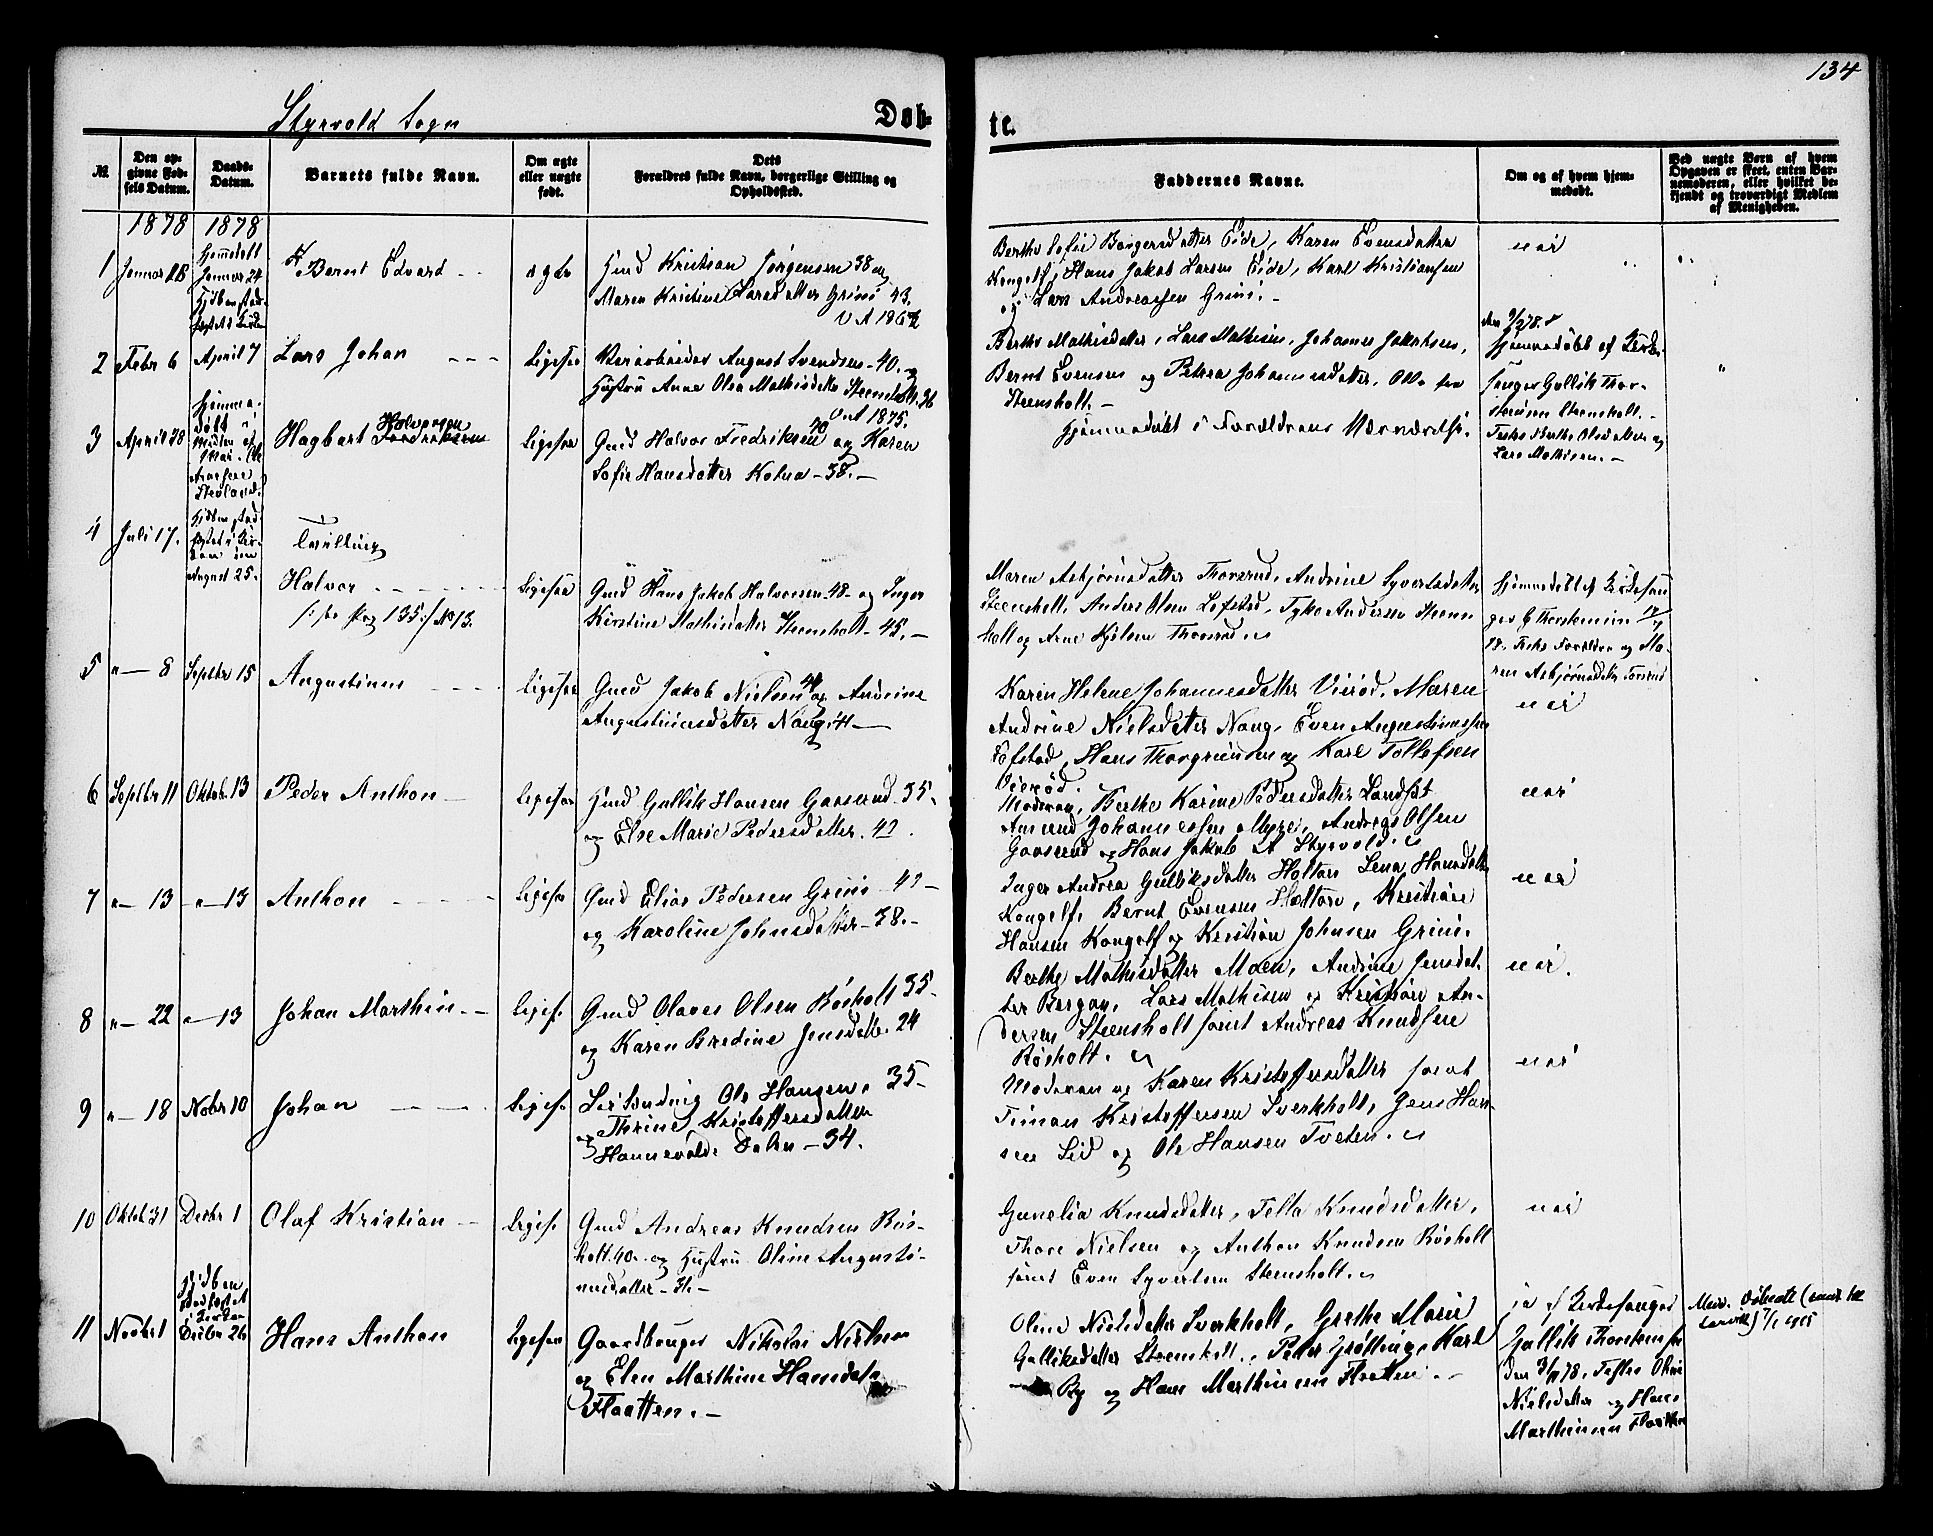 134
Styrvold Sogn
Døb-
te.
№
Den opgivne Fødsels Datum.
Daabs-Datum.
Barnets fulde Navn.
Om ægte eller uægte født.
Dets Forældres fulde Navn, borgerlige Stilling og Opholdssted.
Faddernes Navne.
Om og af hvem hjemmedøbt.
Ved uægte Børn af hvem Opgaven er skeet, enten Barnemoderen, eller hvilket bekjendt og troværdigt Medlem af Menigheden.
1878 1878
1 Januar
Januar 24
Bernt Edvard
ægte
Gmd Kristian Jørgensen 38 og
Maren Kristine Larsdatter Grini 43.
Berthe Sofie Borgersdatter Eide, Karen Evensdatter
Kongelf, Hans Jakob Larsen Eide, Karl Kristiansen
og Lars Andreassen Grini.
nei
2 Febr 6 April 7 Lars Johan
Ligesaa
August Svendsen 40. og
Hustru Anne Olea Mathisdatter Steensholt 36
V. A 1875.
Berthe Mathisdatter, Lars Mathisen, Johannes Jakobsen,
Bernt Evensen og Petrea Johannesdatter, Alle fra
Steensholt.
Hjemmedøbt af Kirke-
sanger Gullik Thor-
stensen Steensholt.
Lars Mathisen.
3 April 28
Hagbart Fredriksen
Halvorsen
Ligesaa
Gmd Halvor Fredriksen 40 og Karen
Sofie Hansdatter Kolna 38.
Hjemmedøbt i Forældrenes Nærværelse.
4 Juli 17.
August 25.
Tvilling
Halvor
se Pag 135 No 13.
Ligesaa
Gmd Hans Jakob Halvorsen 48 og Inger
Kirstine Mathisdatter Steensholt 45.
Maren Asbjørnsdatter Thorsrud, Andrine Syvertsdatter
Steensholt, Anders Olsen Lofstad, Tyke Andersen Steens
holt og Arne Kjølsen Thorsrud
Hjemmedøbt af Kirkesan
ger G Thorstensen 17/7
78. Test. Forældre og Ma-
ren Asbjørnsdatter Torsrud
5 " 8 Septbr 15 Augustinus
Ligesaa
Gmd Jakob Nielsen 41 og Andrine
Augustinusdatter Nang 41
Karen Helene Johannesdatter Vierød, Maren
Andrine Nielsdatter Nang, Even Augustinussen
Lofstad, Hans Thorgrimsen og Karl Tollefsen
Vierød.
nei
6 Septbr 11 Oktob. 13 Peder Anthon
Ligesaa
Gmd Gullik Hansen Gaaserud 35.
og Else Marie Pedersdatter. 42.
Moderen, Berthe Karine Pedersdatter Landsat
Amund Johannessen Myre, Andreas Olsen
Gaaserud og Hans Jakob A Styrvold.
nei
7 " 13 " 13 Anthon
Ligesaa
Gmd Elias Pedersen Grini 42
og Karoline Johnsdatter 38.
Inger Andrea Gulliksdatter Holtan Lena Hansdatter
Kongelf, Bernt Evensen Holtan, Kristian
Hansen Kongelf og Kristian Johnsen Grini.
nei
8 " 22 " 13 Johan Marthin
Ligesaa
Gmd Olaves Olsen Røsholt 35
og Karen Bredine Jensdatter 24
Berthe Mathisdatter Moen, Andrine Jensdat-
ter Bergan, Lars Mathisen og Kristian An-
dersen Steensholt samt Andreas Knudsen
Røsholt.
nei.
9 " 18 Nobr 10 Johan
Ligesaa
Ole Hansen 35
og Thrine Kristoffersdatter
Hannevold Dalen 34.
Moderen og Karen Kristoffersdatter samt
Simon Kristoffersen Sverkholt, Jens Han-
sen Lid og Ole Hansen Tveten.
nei
10 Oktob. 31 Decbr 1 Olaf Kristian
Ligesaa
Gmd Andreas Knudsen Røs-
holt 40 og Hustru Oline Augusti-
nusdatter 31.
Gunelia Knudsdatter, Tella Knudsdatter,
Thore Nielsen og Anthon Knudsen Røsholt
samt Even Syvertsen Steensholt.
nei
11 Novbr 1
Decbr 26
Hans Anthon
Ligesaa
Gaardbruger Nikolai Nielsen
og Elen Marthine Hansdatter
Flaatten.
Oline Nielsdatter Sverkholt, Grethe Marie
Gulliksdatter Steensholt, Peder Karl
Ry og Hans Marthinsen Flaatten.
ja af Kirkesanger
Gullik Thorstensen
den 3/11 78. Testes Oline
Nielsdatter og Hans
Marthinsen Flaatten